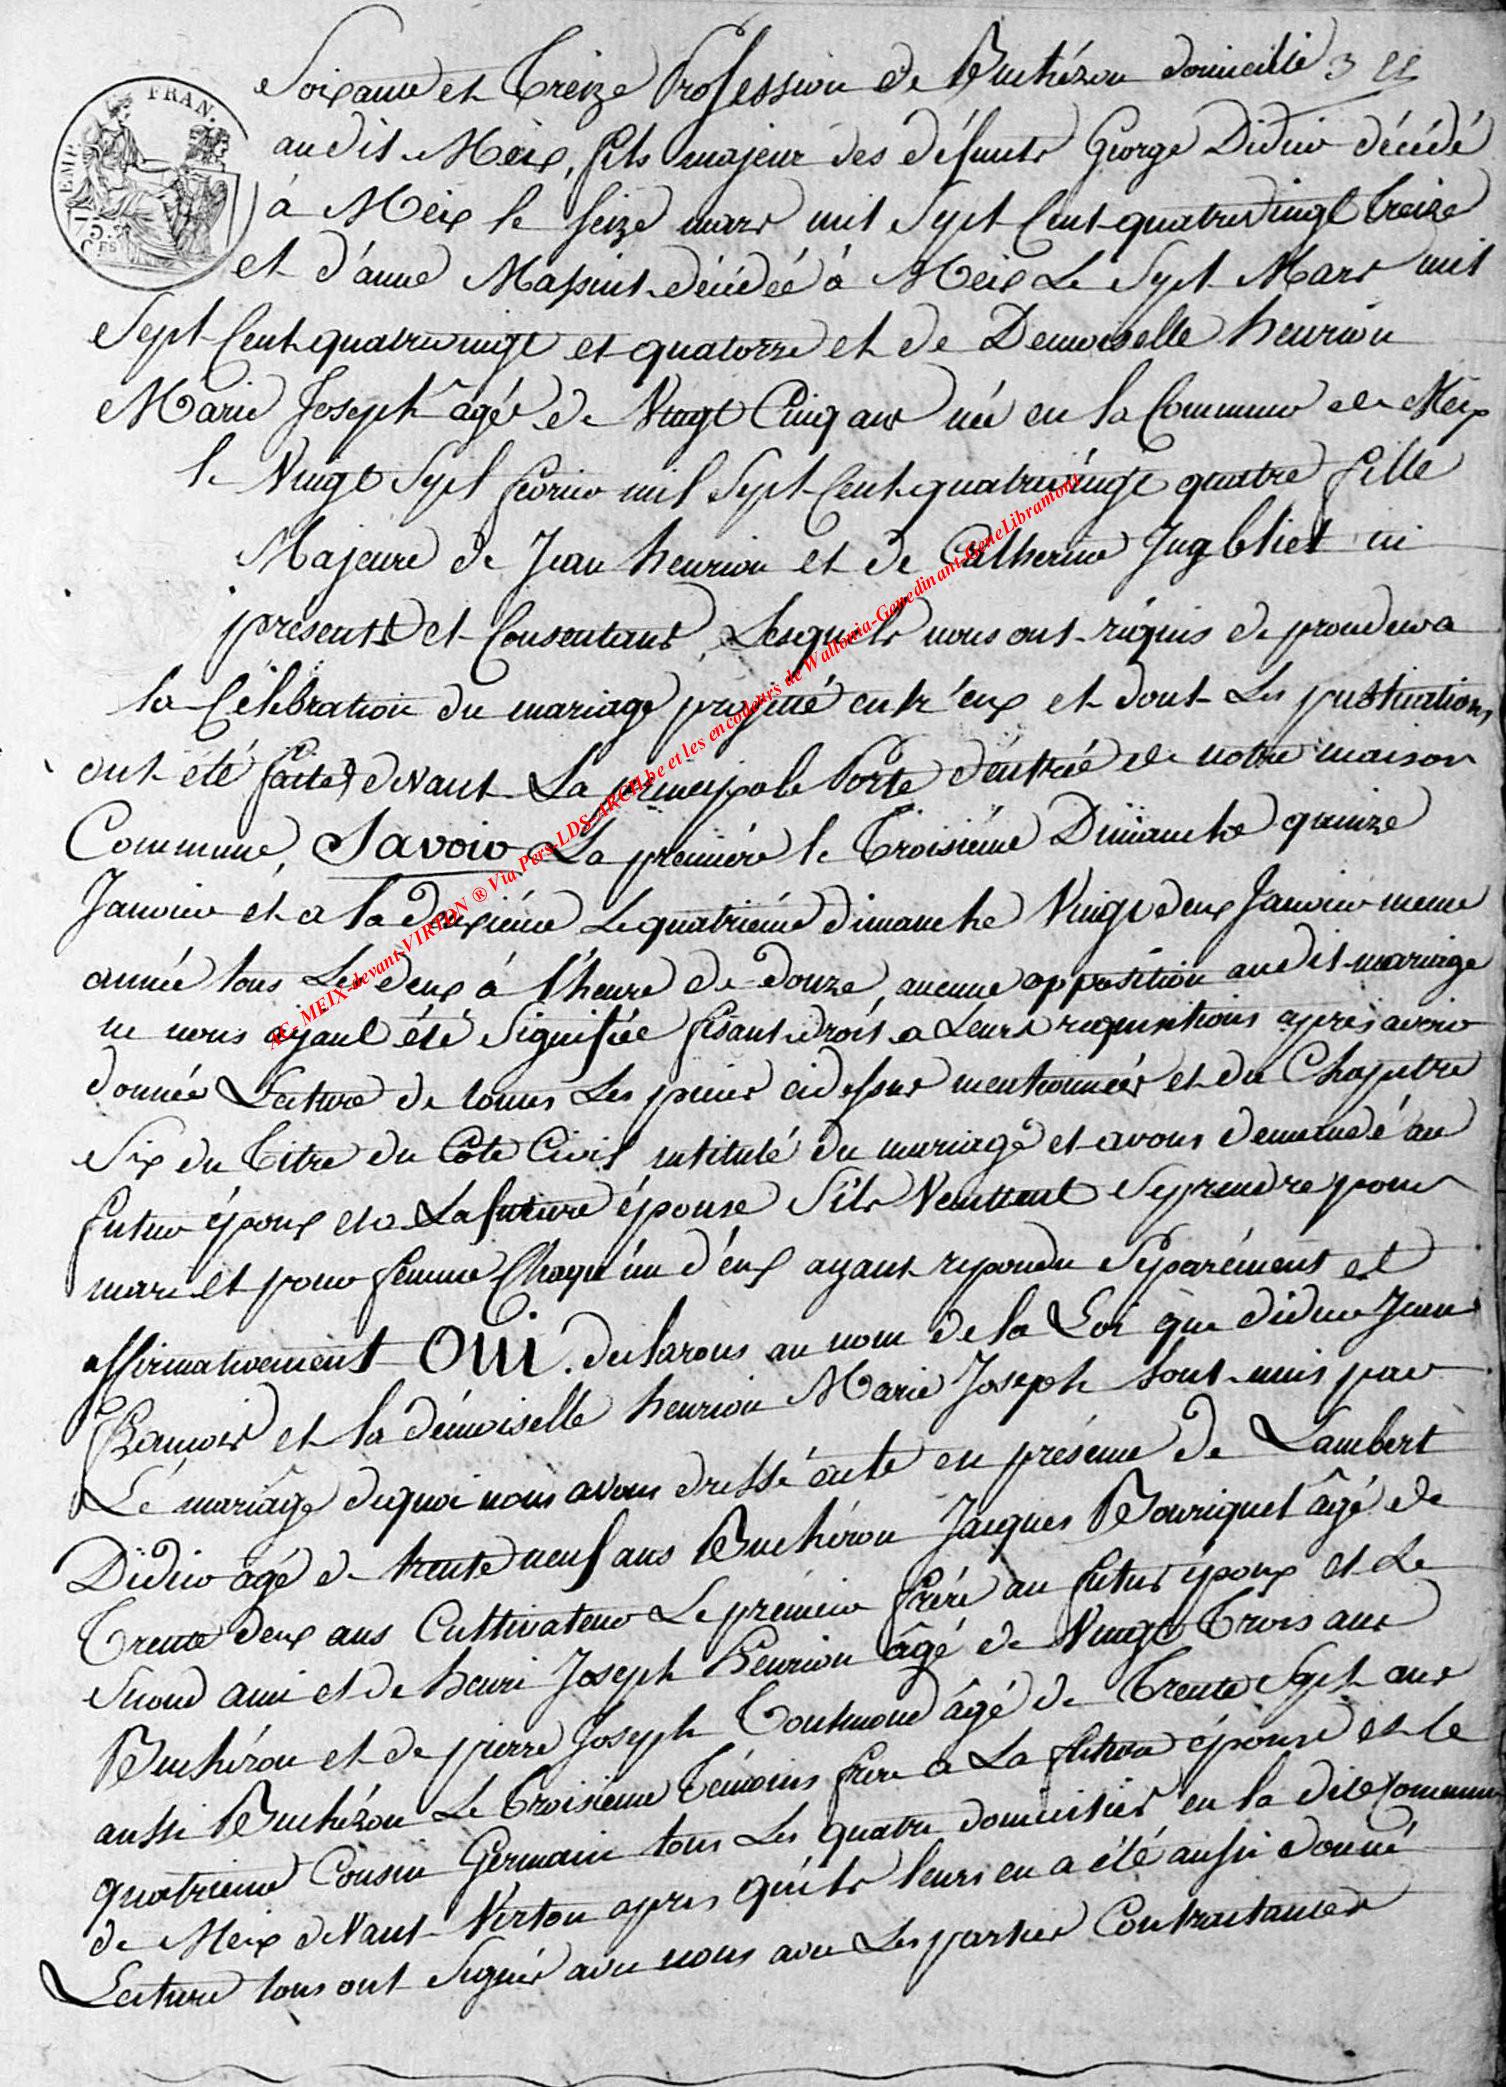 Soixante et Treize Profession de Buchéron domicilié 3
EMP. FRAN.
75. Ces
audit Meix, fils majeur des défunts George Didier décédé
à Meix le seize mars mil Sept Cent quatrevingt treize
et d'anne Massint décédée à Meix Le Sept Mars mil
Sept Cent quatrevingt et quatorze et de Demoiselle henrion
Marie Joseph âgée de Vingt Cinq ans née en la Commune de Meix
le Vingt Sept fevrier mil Sept Cent quatrevingt quatre fille
Majeure de Jean henrion et de Catherine Jngebliet ici
présents et Consentans, Lesquels nous ont réquis de proceder a
la Célébration du mariage projetté entr'eux et dont Les publications
ont été faites devant La principale Porte d'éntrée de notre maison
Commune, Savoir La première le Troisiéme Dimanche quinze
Janvier et a la deuxiéme Le quatriéme dimanche Vingt deux Janvier meme
année tous Les deux à l'heure de douze, aucune opposition audit mariage
ne nous ayant été Signifiée fisant droit a Leurs requisitions apres avoir
donnée Lecture de toutes Les pieces cidessus mentionnées et du Chapitre
Six du Titre du Côte Civil intitulé du mariage et avons demandé au
futur époux et a La future épouse S'ils Veullent Seprendre pour
mari et pour femme Chaqu'un d'eux ayant repondu Séparément et
affirmativement OUI. declarons au nom de la Loi que didier Jean
francois et la démoiselle henrion Marie Joseph Sont unis par
Le mariage dequoi nous avons dressé acte en présence de Lambert
Didier agé de trente neuf ans Buchéron Jacques Bouriquet âgé de
Trente deux ans Cultivateur Le prémier frére au futur époux et Le
Second ami et de henri Joseph henrion âgé de Vingt Trois ans
Buchéron et de pierre Joseph Toutmond âgé de Trente Sept ans
aussi Buchéron Le Troisiéme Témoins frere a La future épouse et le
quatrieme Cousin Germain tous Les quatre domiciliés en la dite Commune
de Meix deVant Virton apres qu'ils leurs en a été aussi donné
Lecture tous ont Signés avec nous avec Les parties Contractantes
AC. MEIX-devant-VIRTON ® Via Pers-LDS-ARCH.be et les encodeurs de Wallonia-Genedinant-GeneLibramont